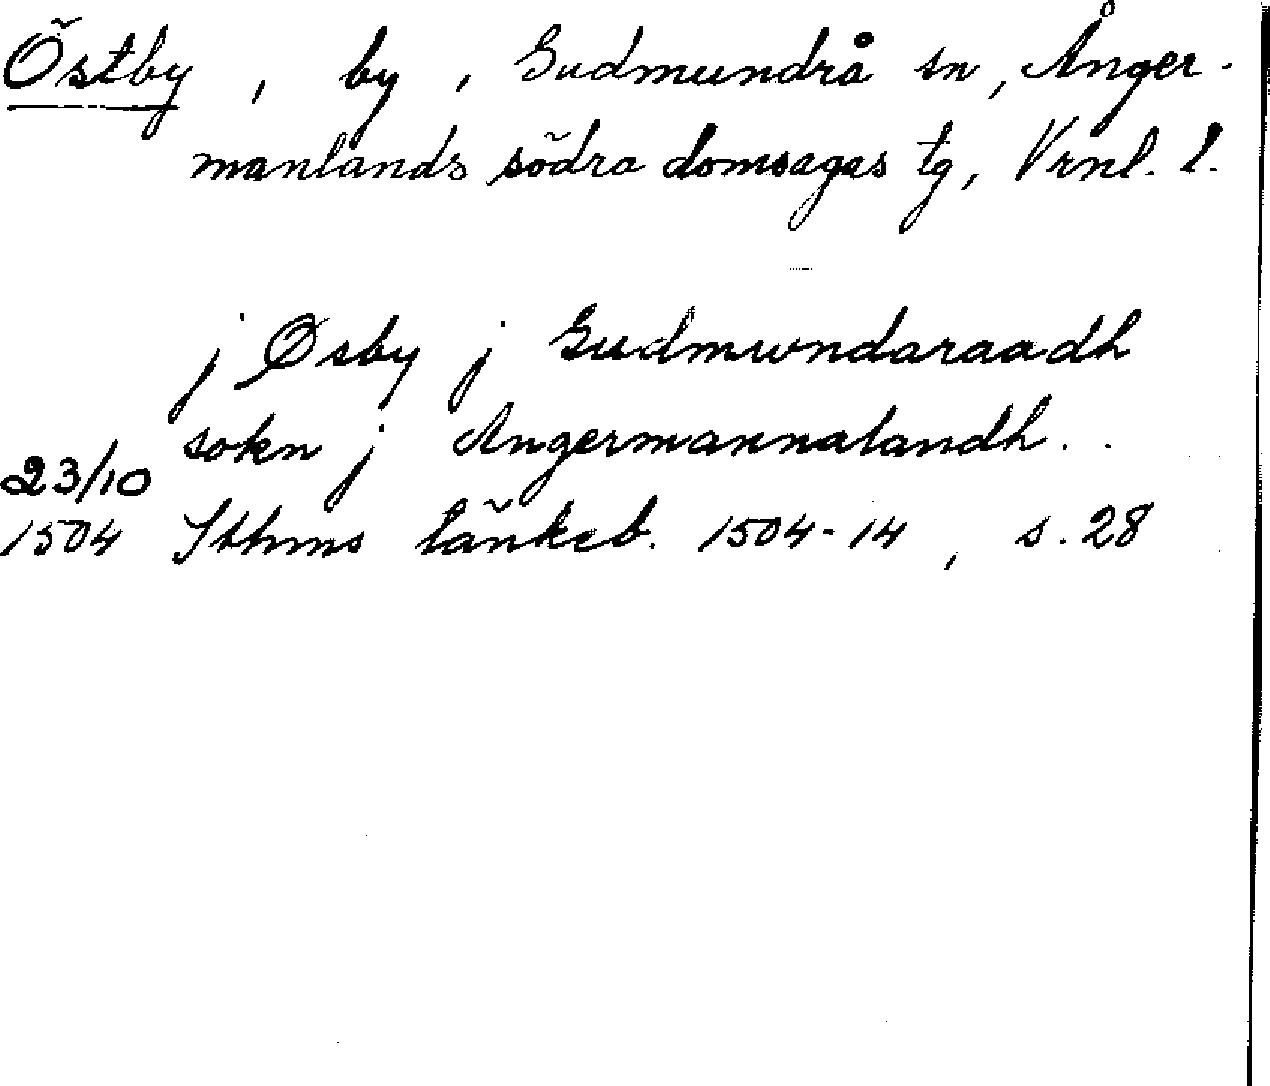 Östby, by, Gudmundrå sn, Ånger-
manlands södra domsagas tg, Vrnl. l.
j Øsby j Gudmwndaraadh
sokn j Angermannalandh..
23/10
1504 Sthms tänkeb. 1504-14, s. 28